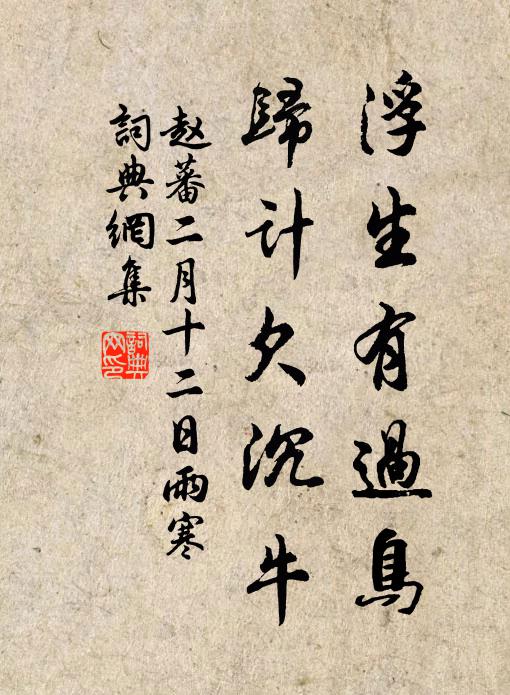 浮生有過鳥
歸計欠沉牛
赵蕃二月十二日雨寒
詞典網集
詞典
网印